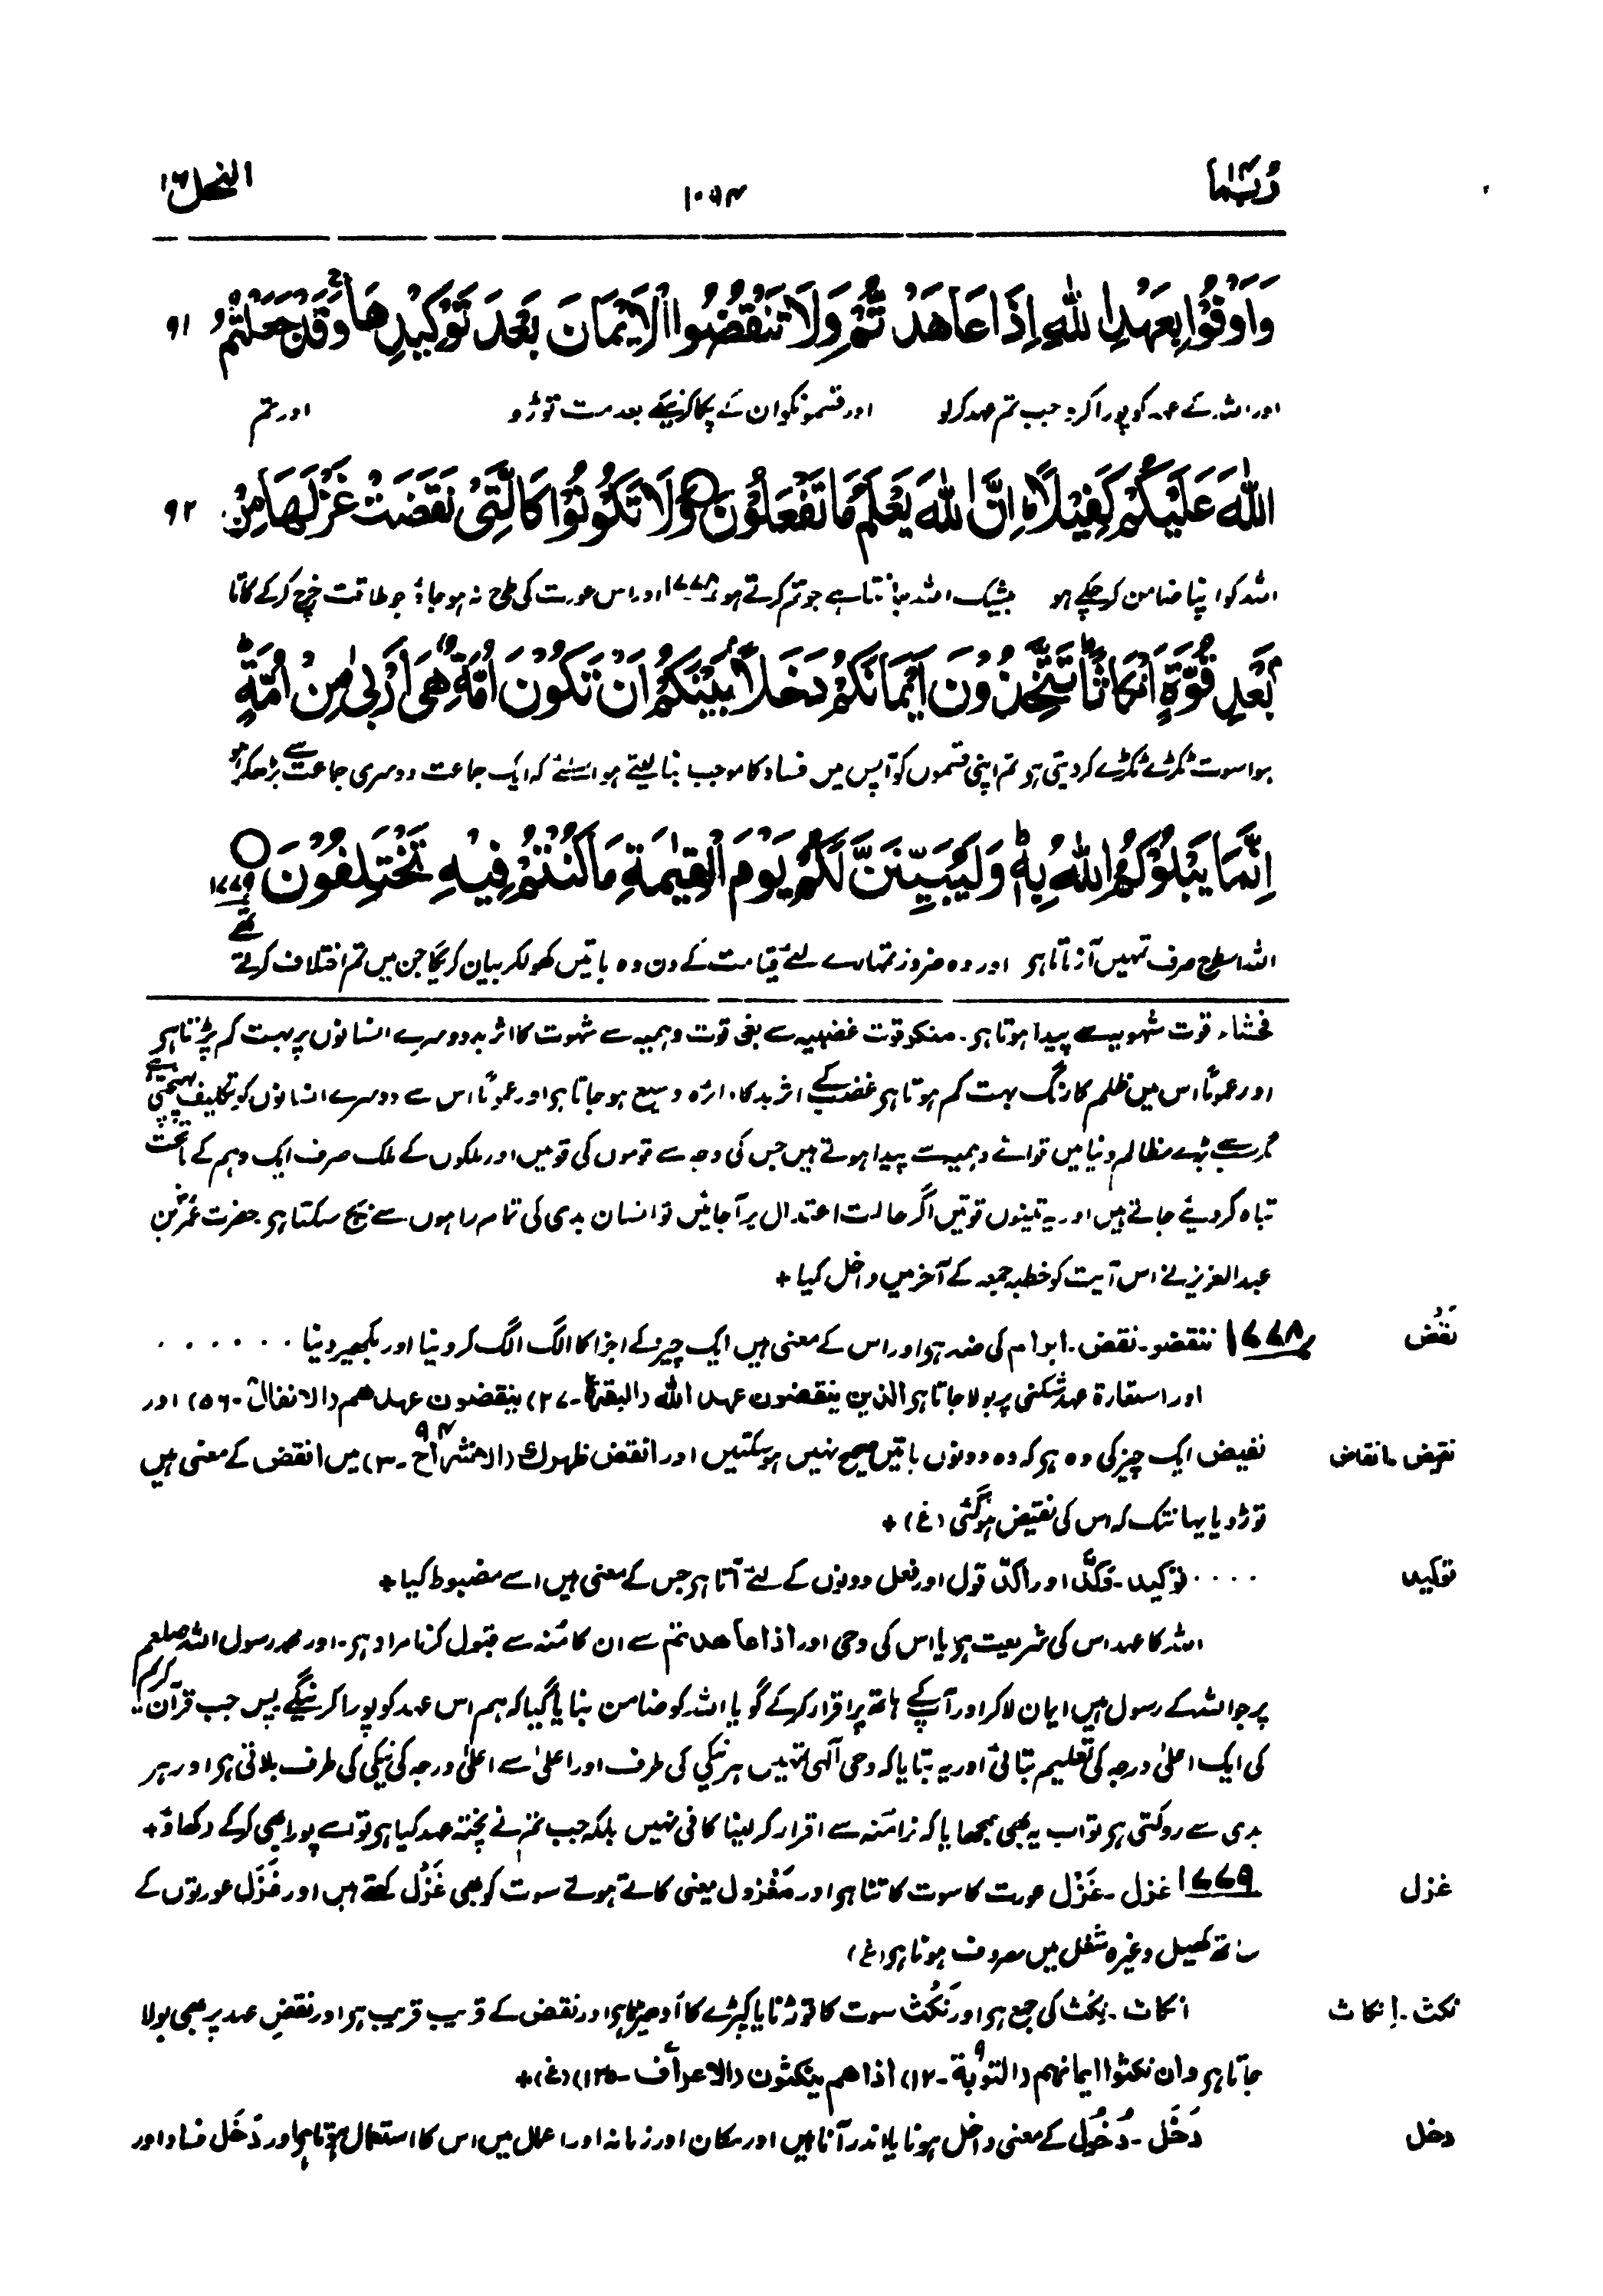 ربما ۱۴
۱۰۶۴
النحل ۱۶
وَاَوْفُوْا بِعَهْدِ اللّٰهِ اِذَا عَاهَدْتُّمْ وَلَا تَنْقُضُوا الْاَيْمَانَ بَعْدَ تَوْكِيْدِهَا وَقَدْ جَعَلْتُمُ ۹۱
اور اللہ کے عہد کو پورا کرو جب تم عہد کرلو اور قسموں کو ان کے پکا کرنیکے بعد مت توڑو اور تم
اللّٰهَ عَلَيْكُمْ كَفِيْلًا ؕ اِنَّ اللّٰهَ يَعْلَمُ مَا تَفْعَلُوْنَ ○ وَلَا تَكُوْنُوْا كَالَّتِيْ نَقَضَتْ غَزْلَهَا مِنْۢ ۹۲
اللہ کو اپنا ضامن کر چکے ہو بیشک اللہ جانتا ہے جو تم کرتے ہو ۱۷۷۸ اور اس عورت کی طرح نہ ہو جاؤ جو طاقت خرچ کر کے کاتا
بَعْدِ قُوَّةٍ اَنْكَاثًا ؕ تَتَّخِذُوْنَ اَيْمَانَكُمْ دَخَلًۢا بَيْنَكُمْ اَنْ تَكُوْنَ اُمَّةٌ هِيَ اَرْبٰى مِنْ اُمَّةٍ ؕ
ہوا سوت ٹکڑے ٹکڑے کر دیتی ہو تم اپنی قسموں کو آپس میں فساد کا موجب بنا لیتے ہو اسلئے کہ ایک جماعت دوسری جماعت سے بڑھکر ہو
اِنَّمَا يَبْلُوْكُمُ اللّٰهُ بِهٖ ؕ وَلَيُبَيِّنَنَّ لَكُمْ يَوْمَ الْقِيٰمَةِ مَا كُنْتُمْ فِيْهِ تَخْتَلِفُوْنَ ○ ۱۷۷۹
اللہ اسطرح صرف تمہیں آزماتا ہو اور وہ ضرور تمہارے لئے قیامت کے دن وہ باتیں کھولکر بیان کریگا جن میں تم اختلاف کرتے تھے
فحشاء قوت شہویہ سے پیدا ہوتا ہو۔ منکر قوت غضبیہ سے بغی قوت وہمیہ سے شہوت کا اثر بد دوسرے انسانوں پر بہت کم پڑتا ہو
اور عموماً اس میں ظلم کا رنگ بہت کم ہوتا ہو غضب کے اثر بد کا دائرہ وسیع ہو جاتا ہو اور عموماً اس سے دوسرے انسانوں کو تکلیف پہنچتی ہے
مگر سب سے بڑے مظالم دنیا میں قوائے وہمیہ سے پیدا ہوتے ہیں جس کی وجہ سے قوموں کی قومیں اور ملکوں کے ملک صرف ایک وہم کے ماتحت
تباہ کر دیئے جاتے ہیں اور یہ تینوں قوتیں اگر حالت اعتدال پر آجائیں تو انسان بدی کی تمام راہوں سے بچ سکتا ہو حضرت عمر بن
عبدالعزیز نے اس آیت کو خطبہ جمعہ کے آخر میں داخل کیا +
نقض
۱۷۷۸ تنقضو۔ نقض۔ ابرام کی ضد ہو اور اس کے معنی ہیں ایک چیز کے اجزا کا الگ الگ کر دینا اور بکھیر دینا ......
اور استعارۃ عہد شکنی پر بولا جاتا ہو الذین ینقضون عہد اللہ (البقرۃ ۲-۲۷) ینقضون عہدھم (الانفال ۸-۵۶) اور
نقیض۔ انقاض
نقیض ایک چیز کی وہ ہو کہ وہ دونوں باتیں صحیح نہیں ہو سکتیں اور انقض ظہرک (الانشراح ۹۴-۳) میں انقض کے معنی ہیں
توڑ دیا یہانتک کہ اس کی نقیض ہو گئی (غ) +
توکید
.... توکید۔ وَکَدَ اور اَکَدَ قول اور فعل دونوں کے لئے آتا ہو جس کے معنی ہیں اسے مضبوط کیا +
اللہ کا عہد اس کی شریعت ہو یا اس کی وحی اور اذا عاھدتم سے ان کا منہ سے قبول کرنا مراد ہو۔ اور محمد رسول اللہ صلعم
پر جو اللہ کے رسول ہیں ایمان لا کر اور آپ کے ہاتھ پر اقرار کر کے گویا اللہ کو ضامن بنایا گیا کہ ہم اس عہد کو پورا کرینگے پس جب قرآن کریم
کی ایک اعلیٰ درجہ کی تعلیم بتائی اور یہ بتایا کہ وحی الٰہی تمہیں ہر نیکی کی طرف اور اعلیٰ سے اعلیٰ درجہ کی نیکی کی طرف بلاتی ہو اور ہر
بدی سے روکتی ہو تو اب یہ بھی سمجھایا کہ نرا منہ سے اقرار کر لینا کافی نہیں بلکہ جب تم نے پختہ عہد کیا ہو تو اسے پورا بھی کر کے دکھاؤ +
غزل
۱۷۷۹ غزل۔ غَزْل عورت کا سوت کاتنا ہو اور مَغْزول یعنی کاتے ہوئے سوت کو بھی غَزْل کہتے ہیں اور غَزَل عورتوں کے
ساتھ کھیل وغیرہ شغل میں مصروف ہونا ہو (غ)
نکث۔ اِنکاث
انکاث۔ نِکْث کی جمع ہو اور نَکْث سوت کا توڑنا یا کپڑے کا ادھیڑنا ہو اور نقض کے قریب قریب ہو اور نقضِ عہد پر بھی بولا
جاتا ہو وان نکثوا ایمانہم (التوبۃ ۹-۱۲) اذا ھم ینکثون (الاعراف ۷-۱۳۵) (غ) +
دخل
دَخَل۔ دُخُول کے معنی داخل ہونا یا اندر آنا ہیں اور مکان اور زمانہ اور اعمال میں اس کا استعمال ہوتا ہو اور دَخَل فساد اور